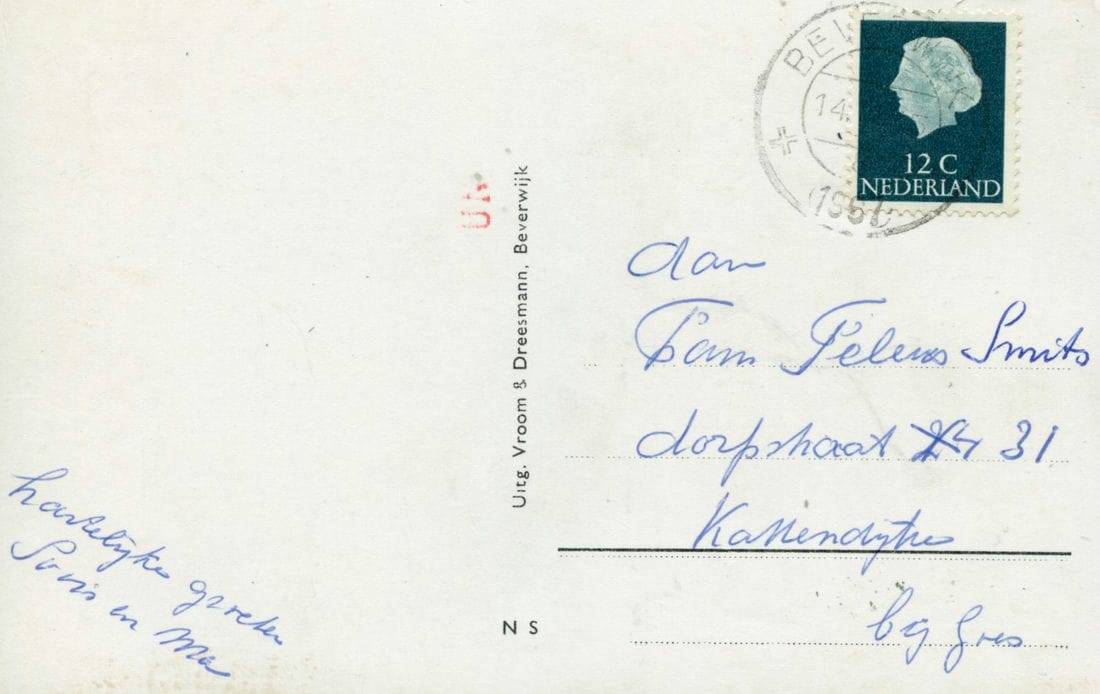 BEVERWIJK
14
12 C
NEDERLAND
Uitg. Vroom & Dreesmann, Beverwijk
Aan
Fam Pelens Smits
dorpstraat 31
Kattendijke
bij Goes
hartelijke groeten
en Ma
N S